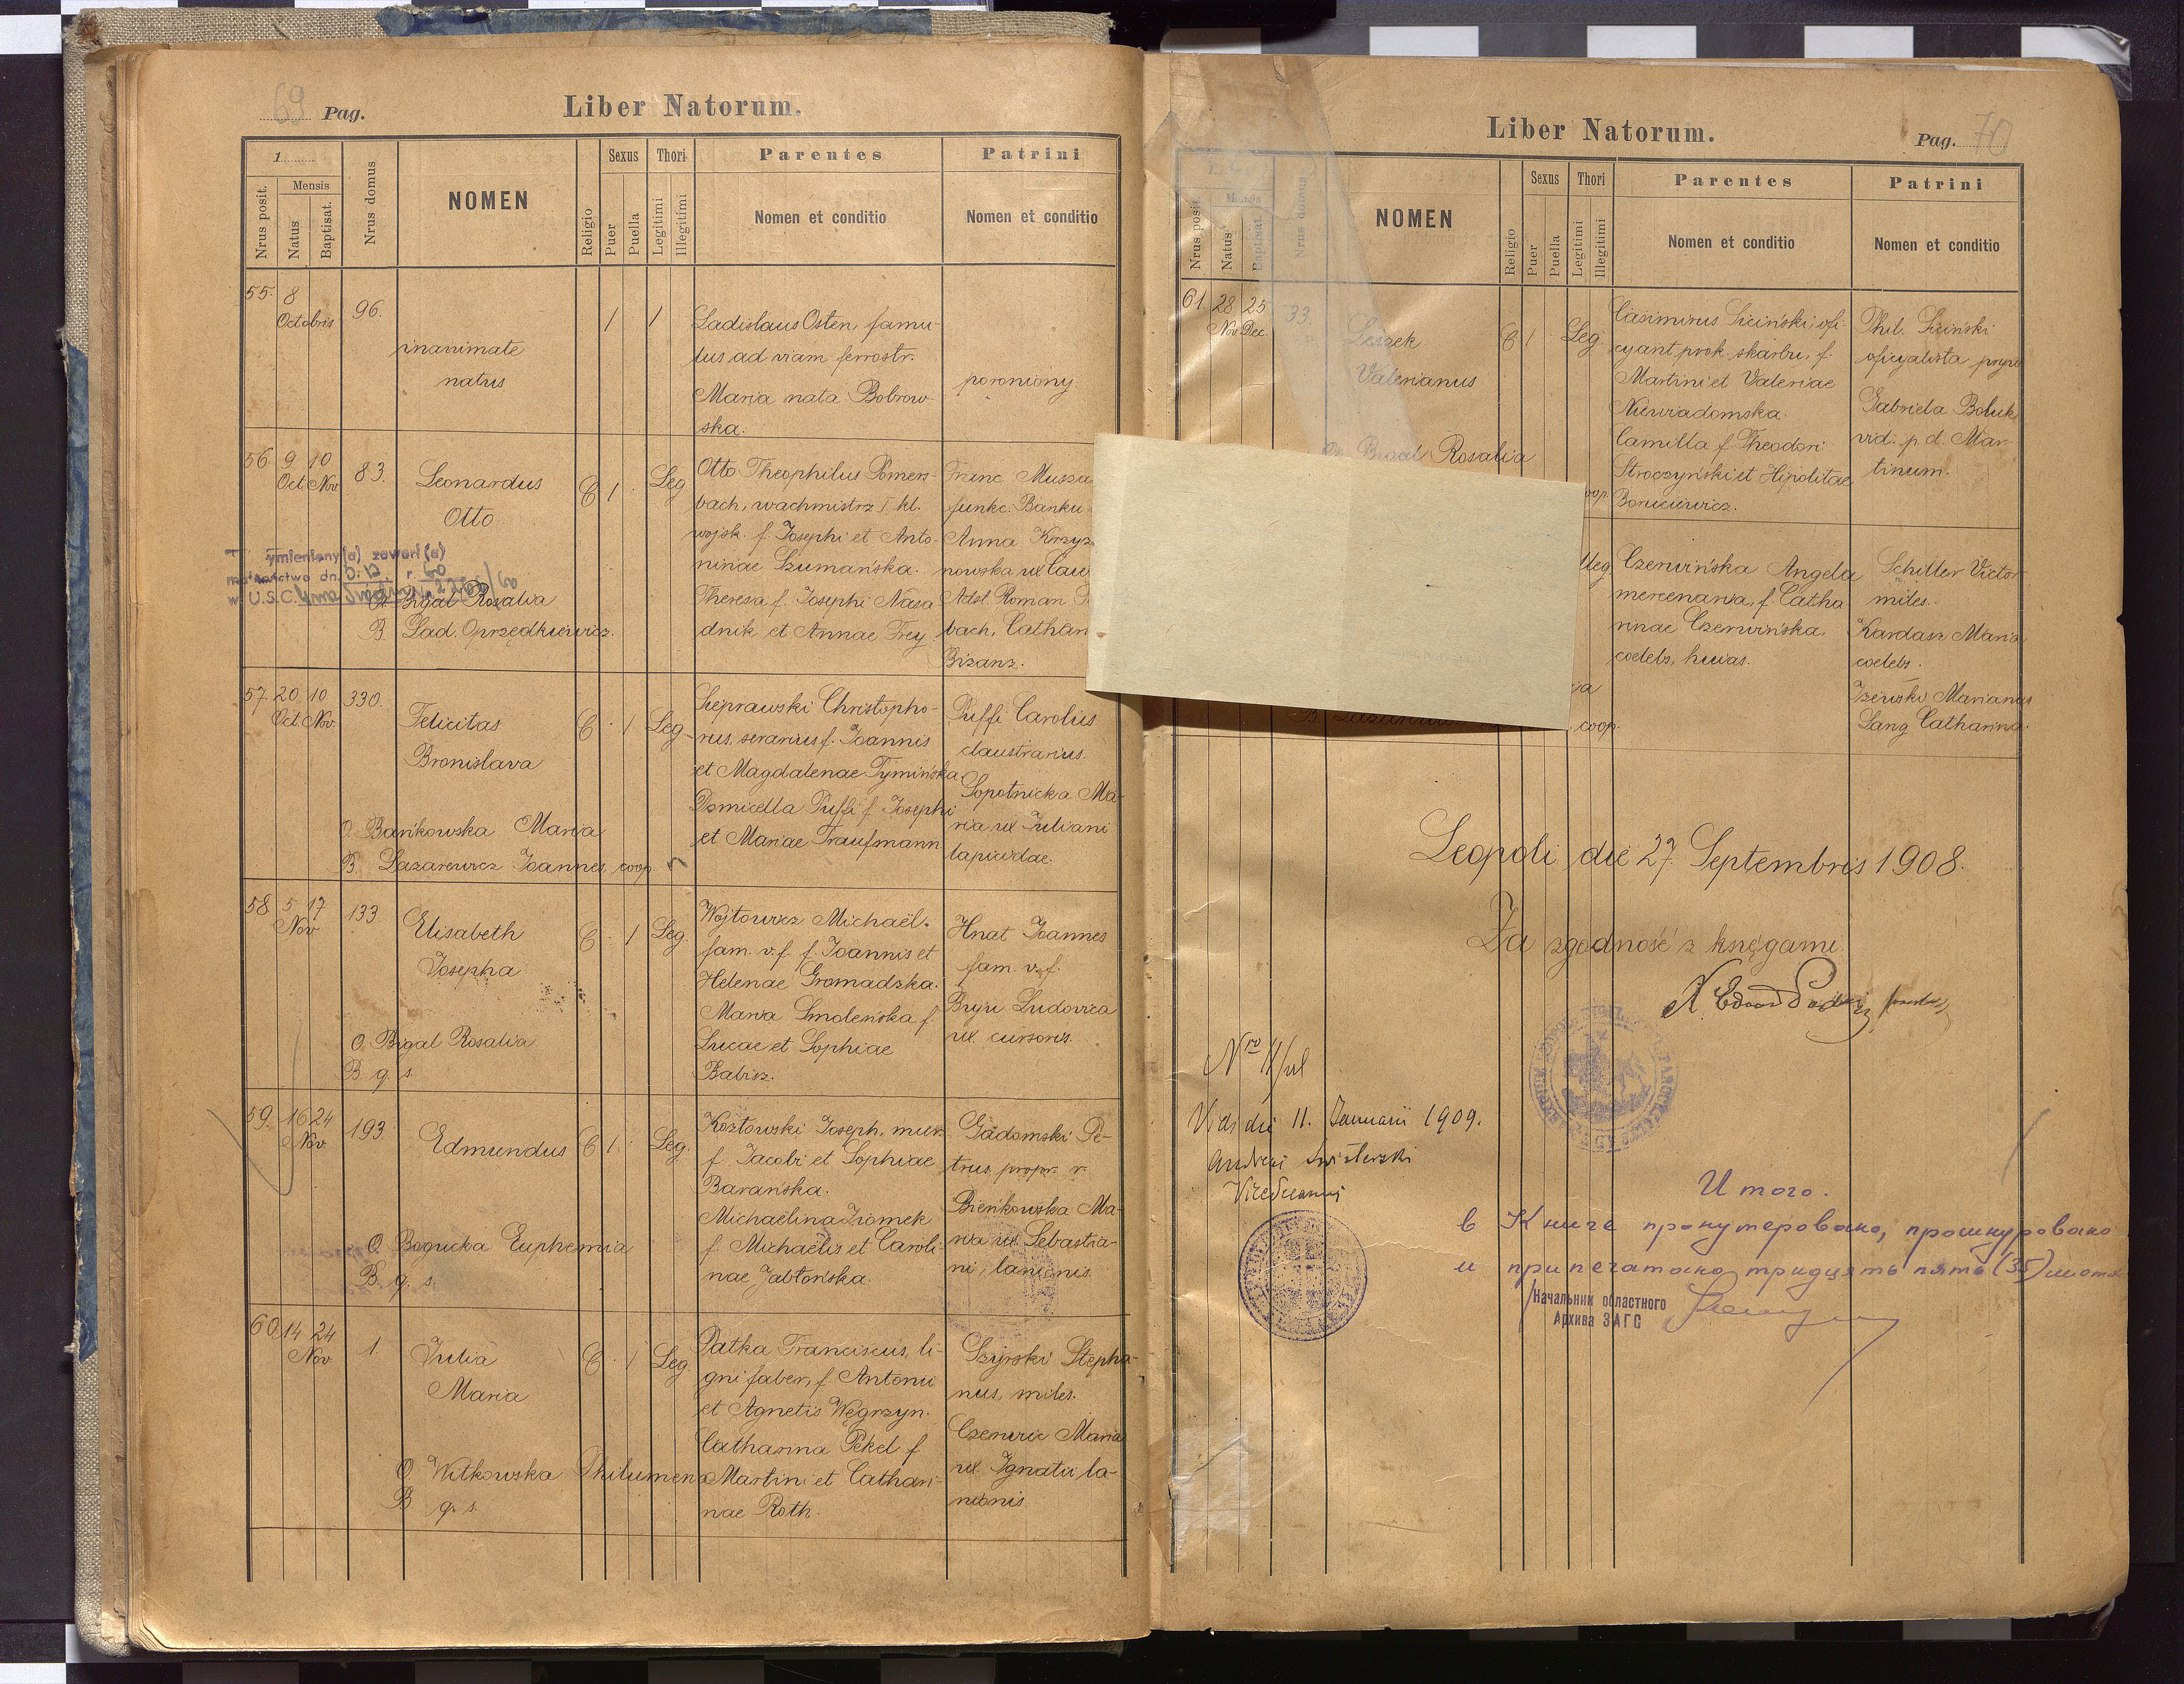 69 Pag.
Liber Natorum.
1
Nrus posit.
Mensis
Natus
Baptisat.
Nrus domus
NOMEN
Religio
Sexus
Puer
Puella
Thori
Legitimi
Illegitimi
Parentes
Nomen et conditio
Patrini
Nomen et conditio
55. 8
Octobris
96.
inanimate
natus
1 1
Ladislaus Osten, famu-
lus ad viam ferrostr.
Maria nata Bobrow-
ska.
poroniony.
56 9 10
Oct. Nov
83.
Leonardus
Otto
C 1 Leg
Otto Theophilus Pomers-
bach, wachmistrz I kl.
wojsk. f. Josephi et Anto-
ninae Szumańska.
Theresa f. Josephi Nasa
dnik et Annae Frey
Franc Musza
funkc. Banku
Anna Krzyz
nowska ux Cau
Adst Roman
bach, Cathar
Bisanz.
ymieniony(a) zawarł(a)
małżeństwo dn.
w U.S.C.
O. Brgal Rosalia
B. Lad. Oprzędkiewicz.
57. 20 10
Oct Nov
330.
Felicitas
Bronislava
C 1 Leg
Lieprawski Christopho-
rus, serarius f. Joannis
et Magdalenae Tymińska
Domicella Puffi f Josephi
et Mariae Traufmann
Puffi Carolus
claustrarius.
Sopotnicka Ma-
ria, ux Juliani
lapicidae.
O. Bańkowska Maria
B. Lazarewicz Joannes, coop
58. 5 17
Nov
133
Elisabeth
Josepha
C 1 Leg.
Wojtowicz Michaël.
fam. v. f. f. Joannis et
Helenae Gromadzka.
Maria Smoleńska f.
Lucae et Sophiae
Babisz.
Hnat Joannes
fam. v. f.
Bryji Ludovica
ux. cursoris.
O. Brgal Rosalia
B. q. s.
59. 16 24
Nov
193
Edmundus
C 1. Leg.
Kozłowski Joseph. mur
f. Jacobi et Sophiae
Barańska.
Michaëlina Ziomek
f. Michaëlis et Caroli-
nae Jabłońska.
Gadomski Pe-
trus propr. r.
Bieńkowska Ma-
ria ux Sebastia-
ni, lanionis.
O. Bogucka Euphemia
B. q. s.
60. 14 24
Nov
1
Julia
Maria
C 1 Leg.
Patka Franciscus, li-
gni faber, f. Antonii
et Agnetis Węgrzyn.
Catharina Pekel f
Martini et Cathari-
nae Roth.
Szyrski Stepha-
nus, miles.
Czerwic Maria
ux. Ignatii la-
nionis
O Witkowska Philumena
B q. s.
Liber Natorum.
Pag. 70
Nrus posit.
Mensis
Natus
Baptisat.
Nrus domus
NOMEN
Religio
Sexus
Puer
Puella
Thori
Legitimi
Illegitimi
Parentes
Nomen et conditio
Patrini
Nomen et conditio
61. 28 25
Nov Dec.
33.
Leszek
Valerianus
C 1 Leg.
Casimirus Liciński, ofi-
cyant prok. skarbu, f.
Martini et Valeriae
Niewiadomska.
Camilla f. Theodori
Stroczyński et Hipolitae
Boniciewicz.
Phil. Liciński
oficyalista pryw
Gabriela Boluk
vid. p. d. Mar-
tinum.
O. Brgal Rosalia
oop.
Illeg
Czerwińska Angela
mercenaria, f. Catha
rinae Czerwińska,
coelebs, huias.
Schiller Victor
miles.
Kardasz Maria
coelebs.
Izewski Marianus
Lang Catharina.
ia
coop.
Leopoli die 27. Septembris 1908.
Za zgodność z księgami.
Nro 11/
Vidi die 11. Januarii 1909.
Итого.
в Книге пронумеровано, прошнуровано
и припечатано тридцять пять (35) листов
Начальник областного
Архива ЗАГС